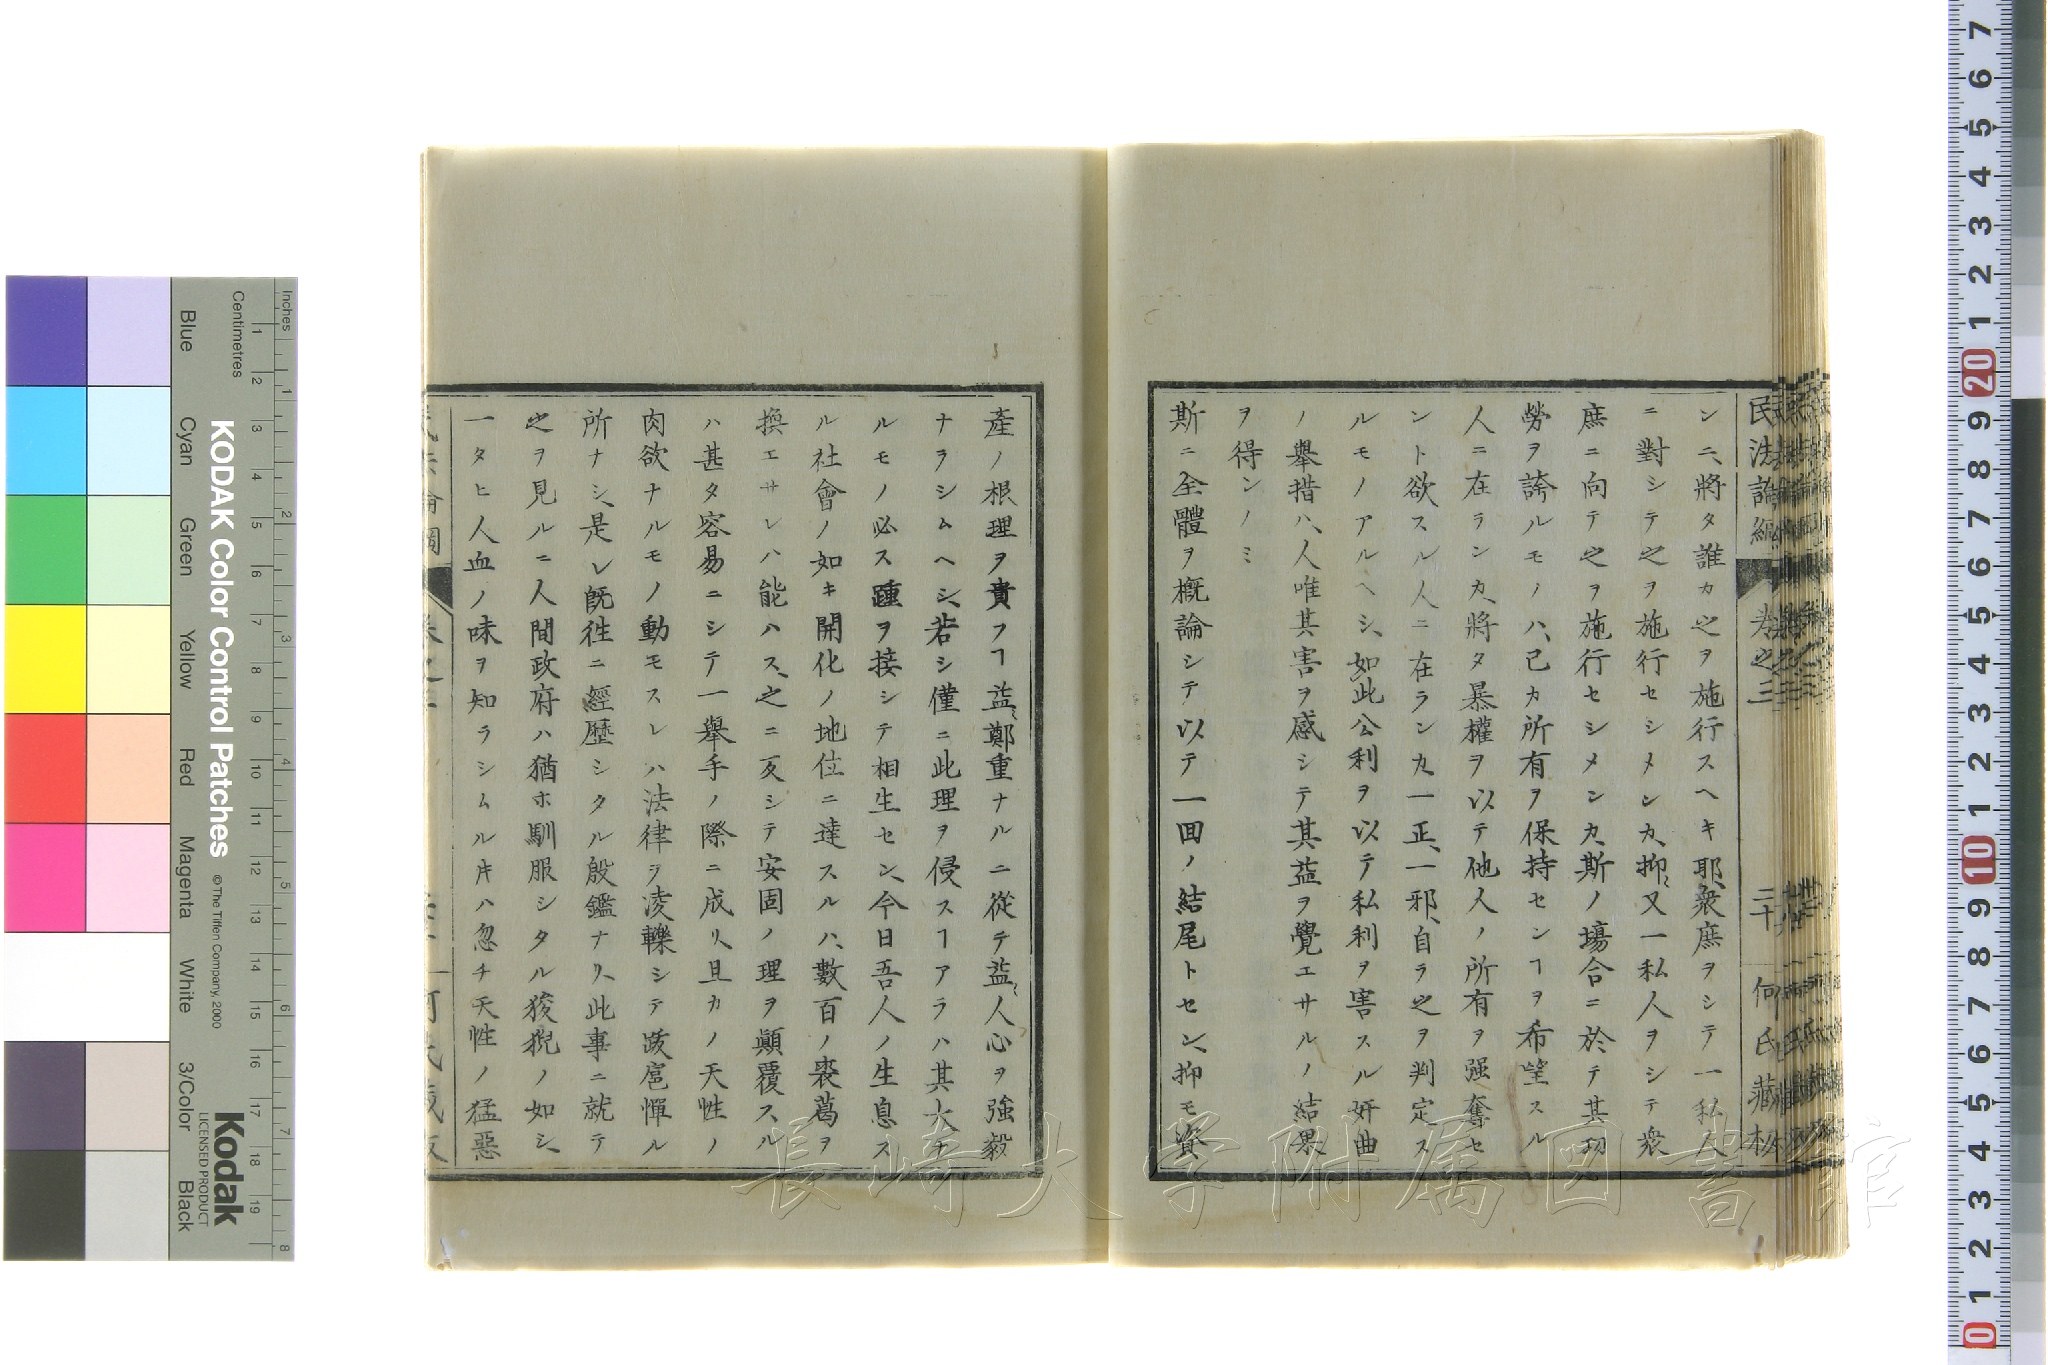 民法論綱
巻之三
二十
何氏藏板
ンニ、將タ誰カ之ヲ施行スヘキ耶、衆庶ヲシテ一私人
ニ對シテ之ヲ施行セシメンカ、抑〻又一私人ヲシテ衆
庶ニ向テ之ヲ施行セシメンカ、斯ノ場合ニ於テ其功
勞ヲ誇ルモノハ、己カ所有ヲ保持センヿヲ希望スル
人ニ在ランカ、將タ暴權ヲ以テ他人ノ所有ヲ强奪セ
ント欲スル人ニ在ランカ、一正、一邪、自ラ之ヲ判定ス
ルモノアルヘシ、如此公利ヲ以テ私利ヲ害スル奸曲
ノ擧措ハ、人唯其害ヲ感シテ其益ヲ覺エサルノ結果
ヲ得ンノミ
斯ニ全體ヲ概論シテ以テ一回ノ結尾トセン、抑モ資
產ノ根理ヲ貴フヿ益〻鄭重ナルニ從テ益〻人心ヲ強毅
ナラシムヘシ、若シ僅ニ此理ヲ侵スヿアラハ其大ナ
ルモノ必ス踵ヲ接シテ相生セン、今日吾人ノ生息ス
ル社會ノ如キ開化ノ地位ニ達スルハ、數百ノ裘葛ヲ
換エサレハ能ハス、之ニ反シテ安固ノ理ヲ顚覆スル
ハ甚タ容易ニシテ一擧手ノ際ニ成リ、且カノ天性ノ
肉欲ナルモノ動モスレハ法律ヲ凌轢シテ跋扈憚ル
所ナシ、是レ旣往ニ經歷シタル殷鑑ナリ、此事ニ就テ
之ヲ見ルニ人間政府ハ猶ホ馴服シタル狻猊ノ如シ、
一タヒ人血ノ味ヲ知ラシムル𪜈ハ忽チ天性ノ猛惡
長崎大学附属図書館
KODAK Color Control Patches
© The Tiffen Company, 2000
Kodak
LICENSED PRODUCT
Inches
Centimetres
1 2 3 4 5 6 7 8
1 2 3 4 5 6 7 8 9 10 11 12 13 14 15 16 17 18 19
Blue
Cyan
Green
Yellow
Red
Magenta
White
3/Color
Black
7 6 5 4 3 2 1 20 9 8 7 6 5 4 3 2 1 10 9 8 7 6 5 4 3 2 1 0